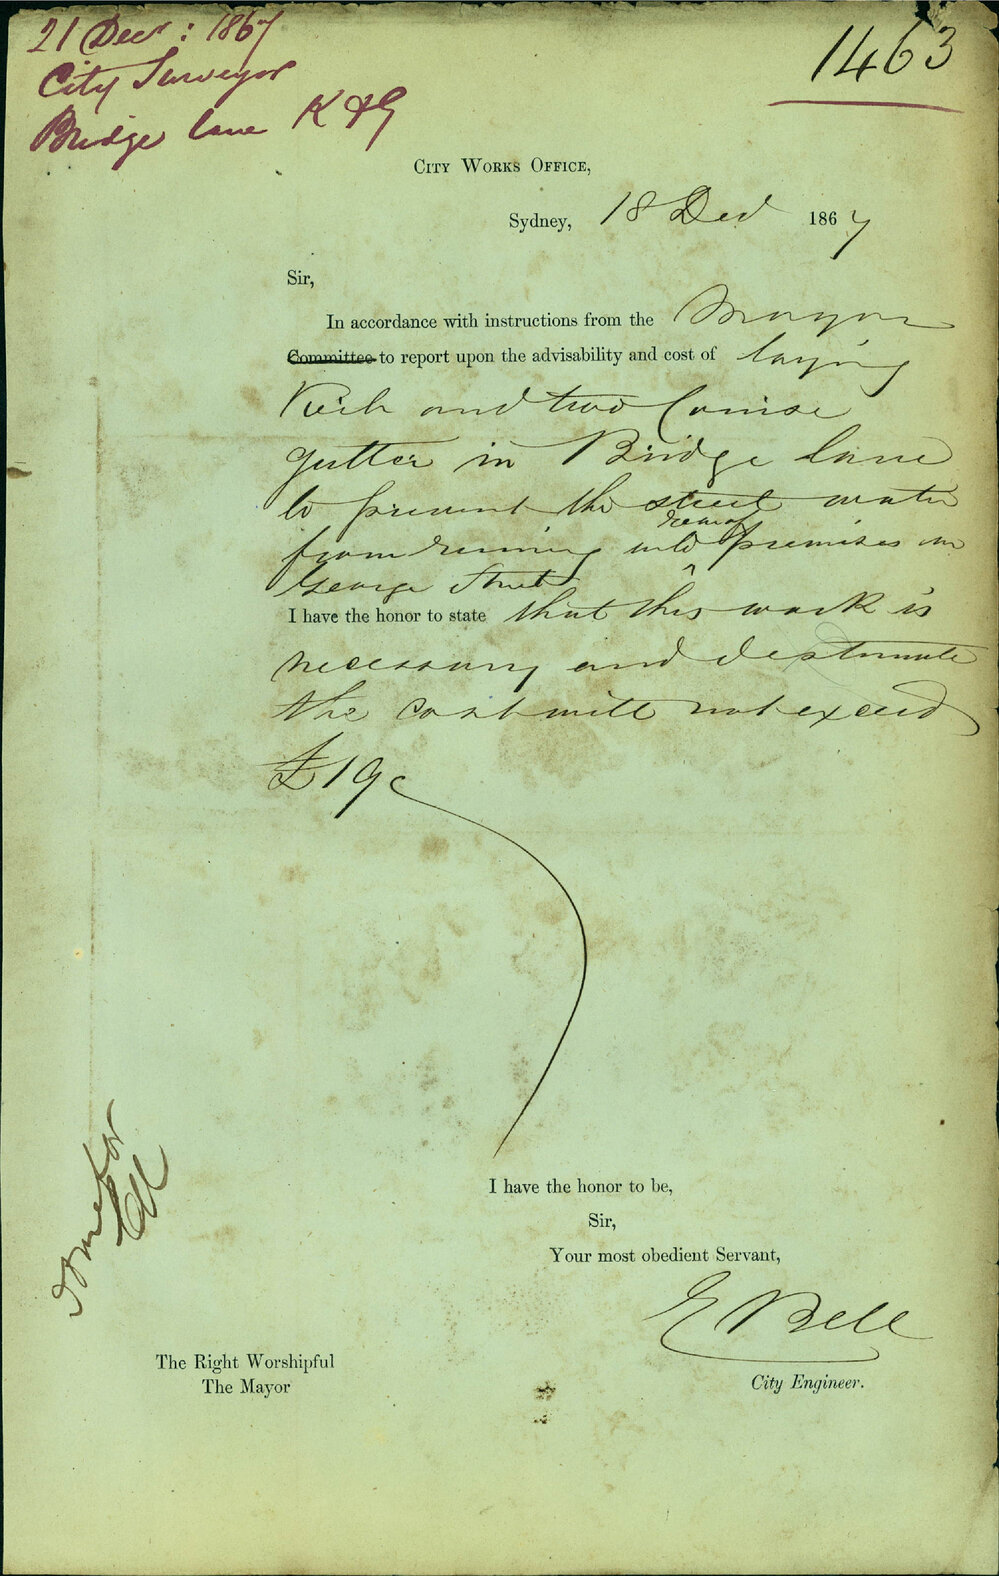 21 Decr: 1867
City Surveyor
Bridge lane K & G
1463
City Works Office,
Sydney, 18 Decr 1867
Sir,
In accordance with instructions from the Mayor
Committee to report upon the advisability and cost of laying
Kerb and two Course
gutter in Bridge lane
to prevent the street water
from running into rear of premises in
George Street
I have the honor to state that this work is
necessary and I estimate
the cost will not exceed
£19
I have the honor to be,
Sir,
Your most obedient Servant,
E Bell
City Engineer.
The Right Worshipful
The Mayor